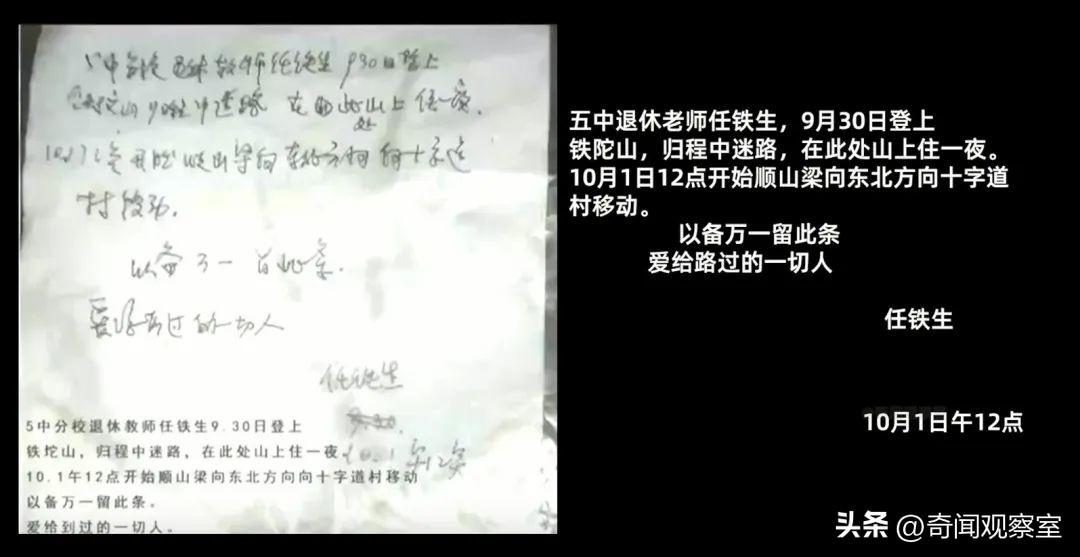 5中分校退休教师任铁生9.30日登上
铁坨山归程中迷路 在此处山上住一夜.
10.1午12点开始顺山梁向东北方向向十字道
村移动.
以备万一留此条.
爱给到过的一切人
任铁生
10.1午12点
5中分校退休教师任铁生9.30日登上
铁坨山，归程中迷路，在此处山上住一夜
10.1午12点开始顺山梁向东北方向向十字道村移动
以备万一留此条。
爱给到过的一切人。
五中退休老师任铁生，9月30日登上
铁陀山，归程中迷路，在此处山上住一夜。
10月1日12点开始顺山梁向东北方向十字道
村移动。
以备万一留此条
爱给路过的一切人
任铁生
10月1日午12点
头条 @奇闻观察室